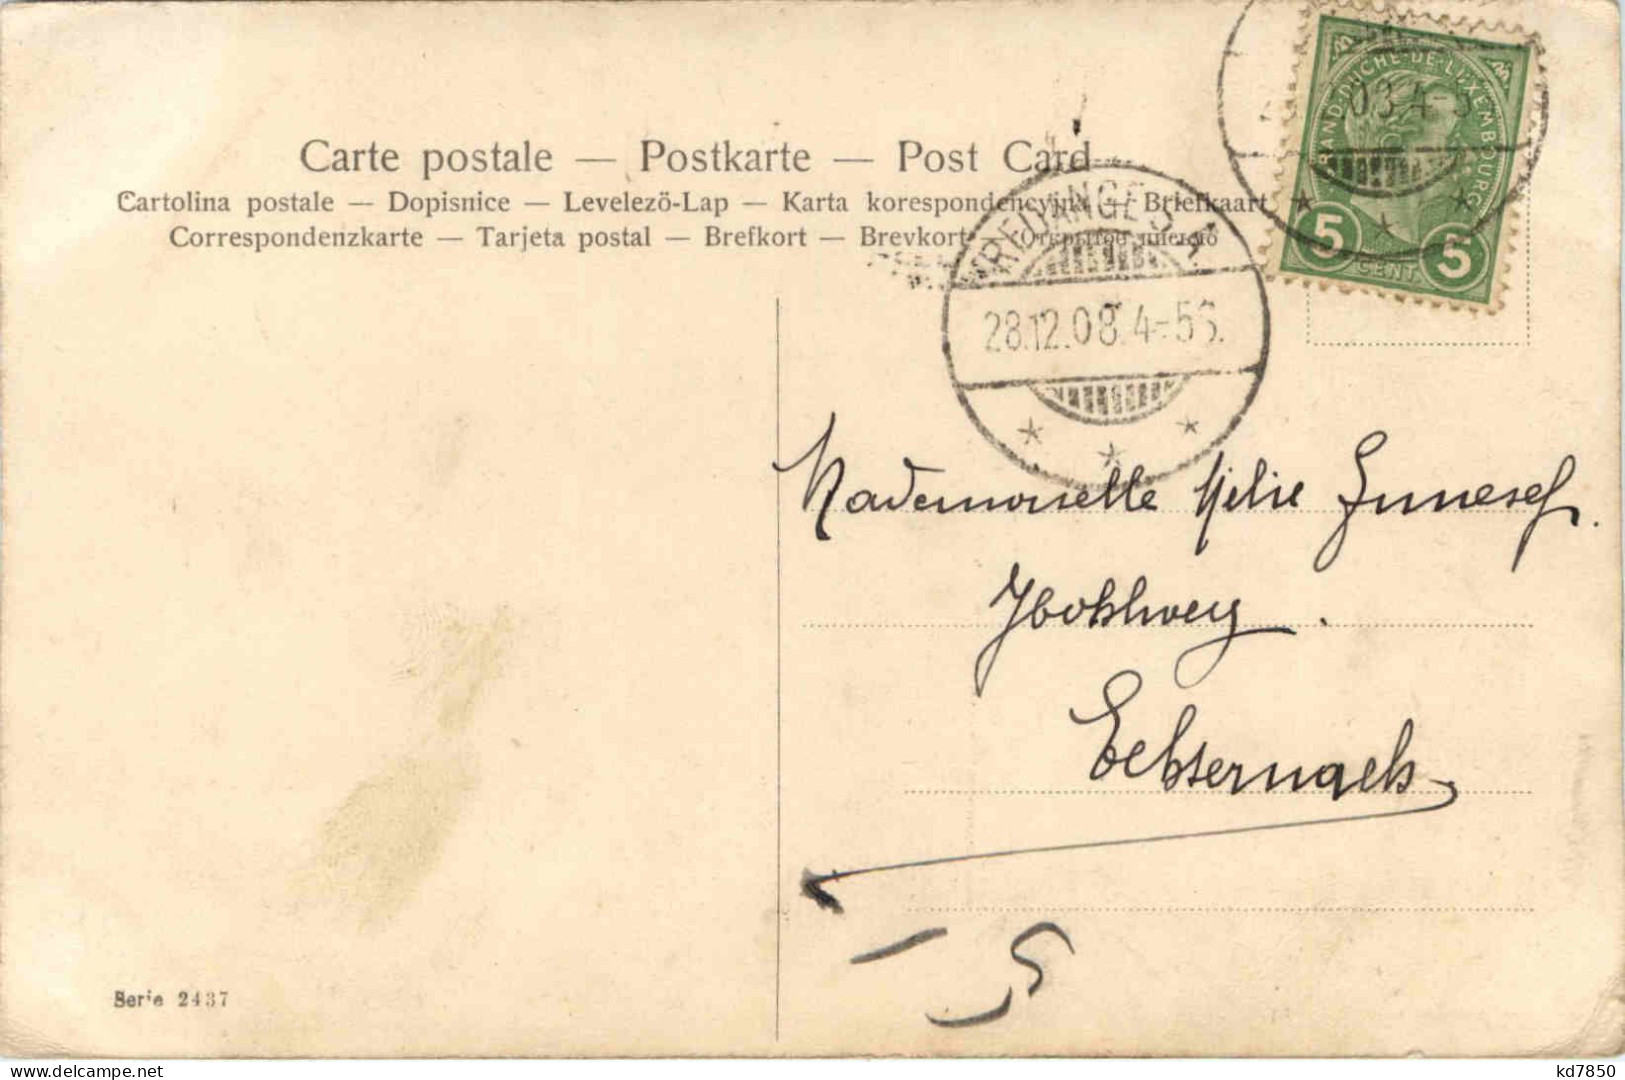 Carte postale — Postkarte — Post Card
Cartolina postale — Dopisnice — Levelezö-Lap — Karta korespondencyjna — Briefkaart
Correspondenzkarte — Tarjeta postal — Brefkort — Brevkort — Открытое письмо
GRAND-DUCHÉ-DE-LUXEMBOURG
5 CENT. 5
28.12.08. 4-5
Mademoiselle
Echternach
5
Serie 2437
delcampe.net
kd7850